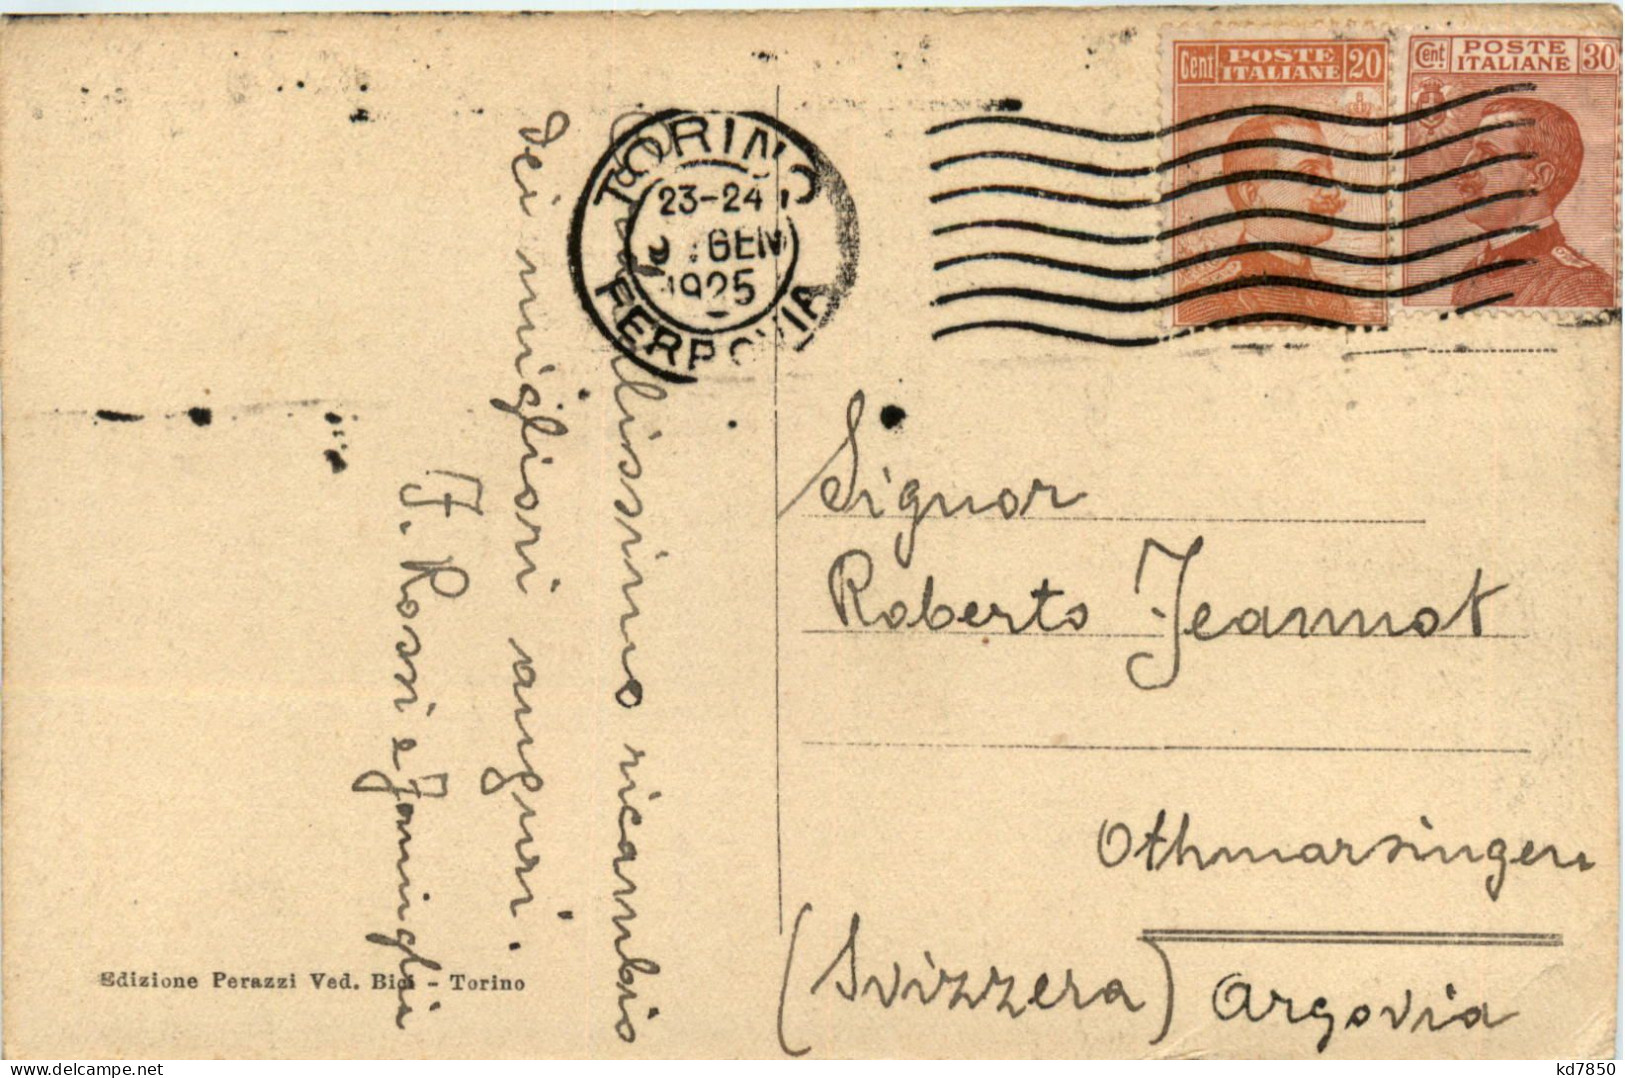 Cent POSTE ITALIANE 20
Cent. POSTE ITALIANE 30
TORINO
23-24
GEN
1925
FERROVIA
ricambio
dei migliori auguri.
F. Rossi e famiglia
Signor
Roberto Jeannot
Othmarsingen
(Svizzera) Argovia
Edizione Perazzi Ved. Bici - Torino
kd7850